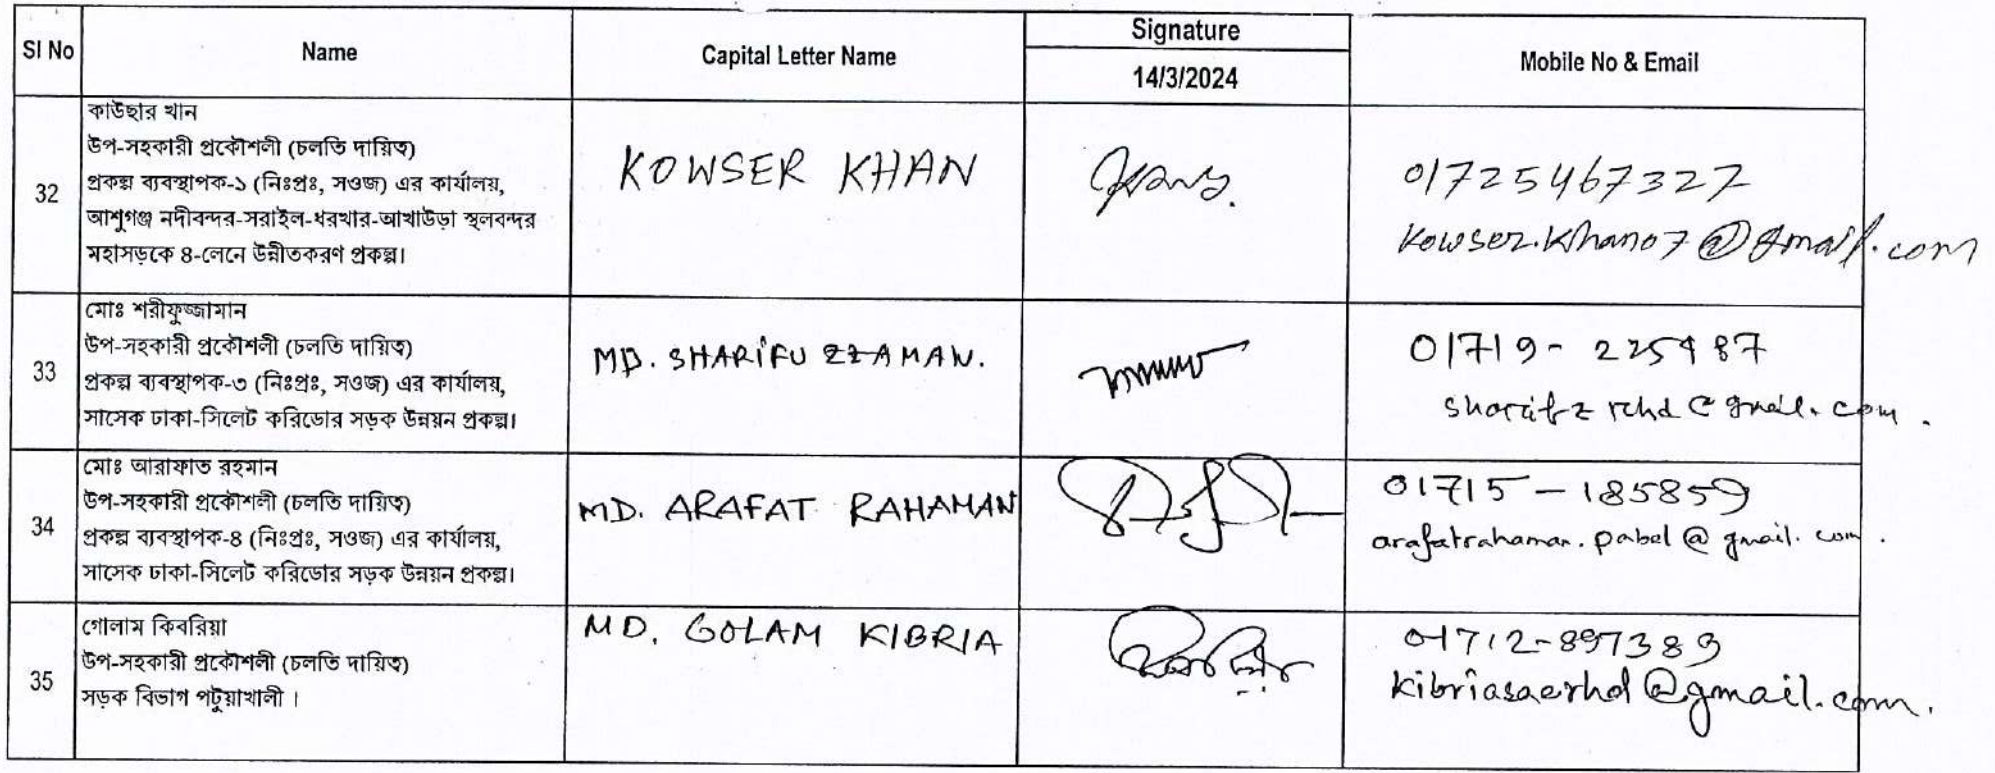 Sl No Name Capital Letter Name Signature Mobile No & Email
14/3/2024
32
কাউছার খান
উপ-সহকারী প্রকৌশলী (চলতি দায়িত্ব)
প্রকল্প ব্যবস্থাপক-১ (নিঃপ্রঃ, সওজ) এর কার্যালয়,
আশুগঞ্জ নদীবন্দর-সরাইল-ধরখার-আখাউড়া স্থলবন্দর
মহাসড়কে ৪-লেনে উন্নীতকরণ প্রকল্প।
KOWSER KHAN
01725467327
kowser.khan07@gmail.com
33
মোঃ শরীফুজ্জামান
উপ-সহকারী প্রকৌশলী (চলতি দায়িত্ব)
প্রকল্প ব্যবস্থাপক-৩ (নিঃপ্রঃ, সওজ) এর কার্যালয়,
সাসেক ঢাকা-সিলেট করিডোর সড়ক উন্নয়ন প্রকল্প।
MD. SHARIFUZZAMAN.
01719-225987
sharifz rhd@gmail.com.
34
মোঃ আরাফাত রহমান
উপ-সহকারী প্রকৌশলী (চলতি দায়িত্ব)
প্রকল্প ব্যবস্থাপক-৪ (নিঃপ্রঃ, সওজ) এর কার্যালয়,
সাসেক ঢাকা-সিলেট করিডোর সড়ক উন্নয়ন প্রকল্প।
MD. ARAFAT RAHAMAN
01715-185859
arafatrahaman.pabel@gmail.com.
35
গোলাম কিবরিয়া
উপ-সহকারী প্রকৌশলী (চলতি দায়িত্ব)
সড়ক বিভাগ পটুয়াখালী ।
MD. GOLAM KIBRIA
01712-897389
kibriasaerhd@gmail.com.